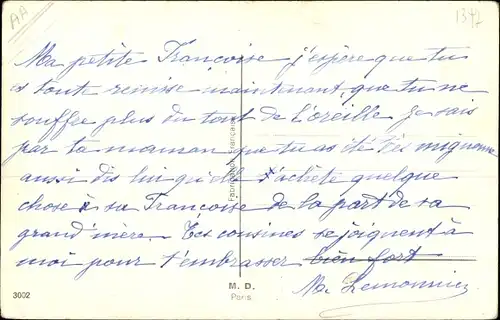 AA
1342
Ma petite Françoise j'espère que tu
es toute remise maintenant, que tu ne
souffre plus du tout de l'oreille je sais
par ta maman que tu as été très mignonne
aussi dis lui qu'elle t'achète quelque
chose à sa Françoise de la part de sa
grand'mère. Tes cousines se joignent à
moi pour t'embrasser bien fort
M. Lemonnier
Fabrication Française
3002
M. D.
Paris